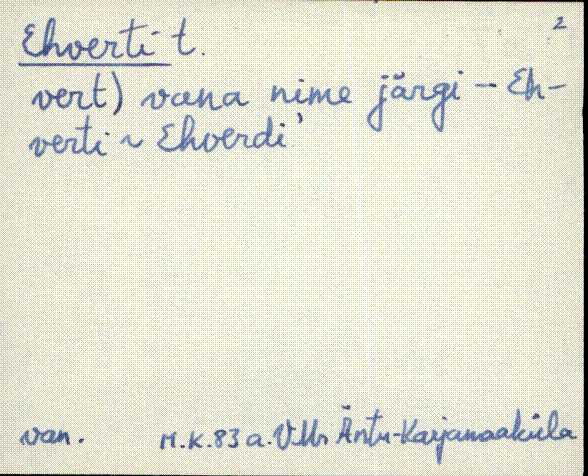 2
Ehverti t.
vert) vana nime järgi - Eh-
verti ~ Ehverdi'
van. M.K. 83 a. VMr Äntu-Karjanaaküla